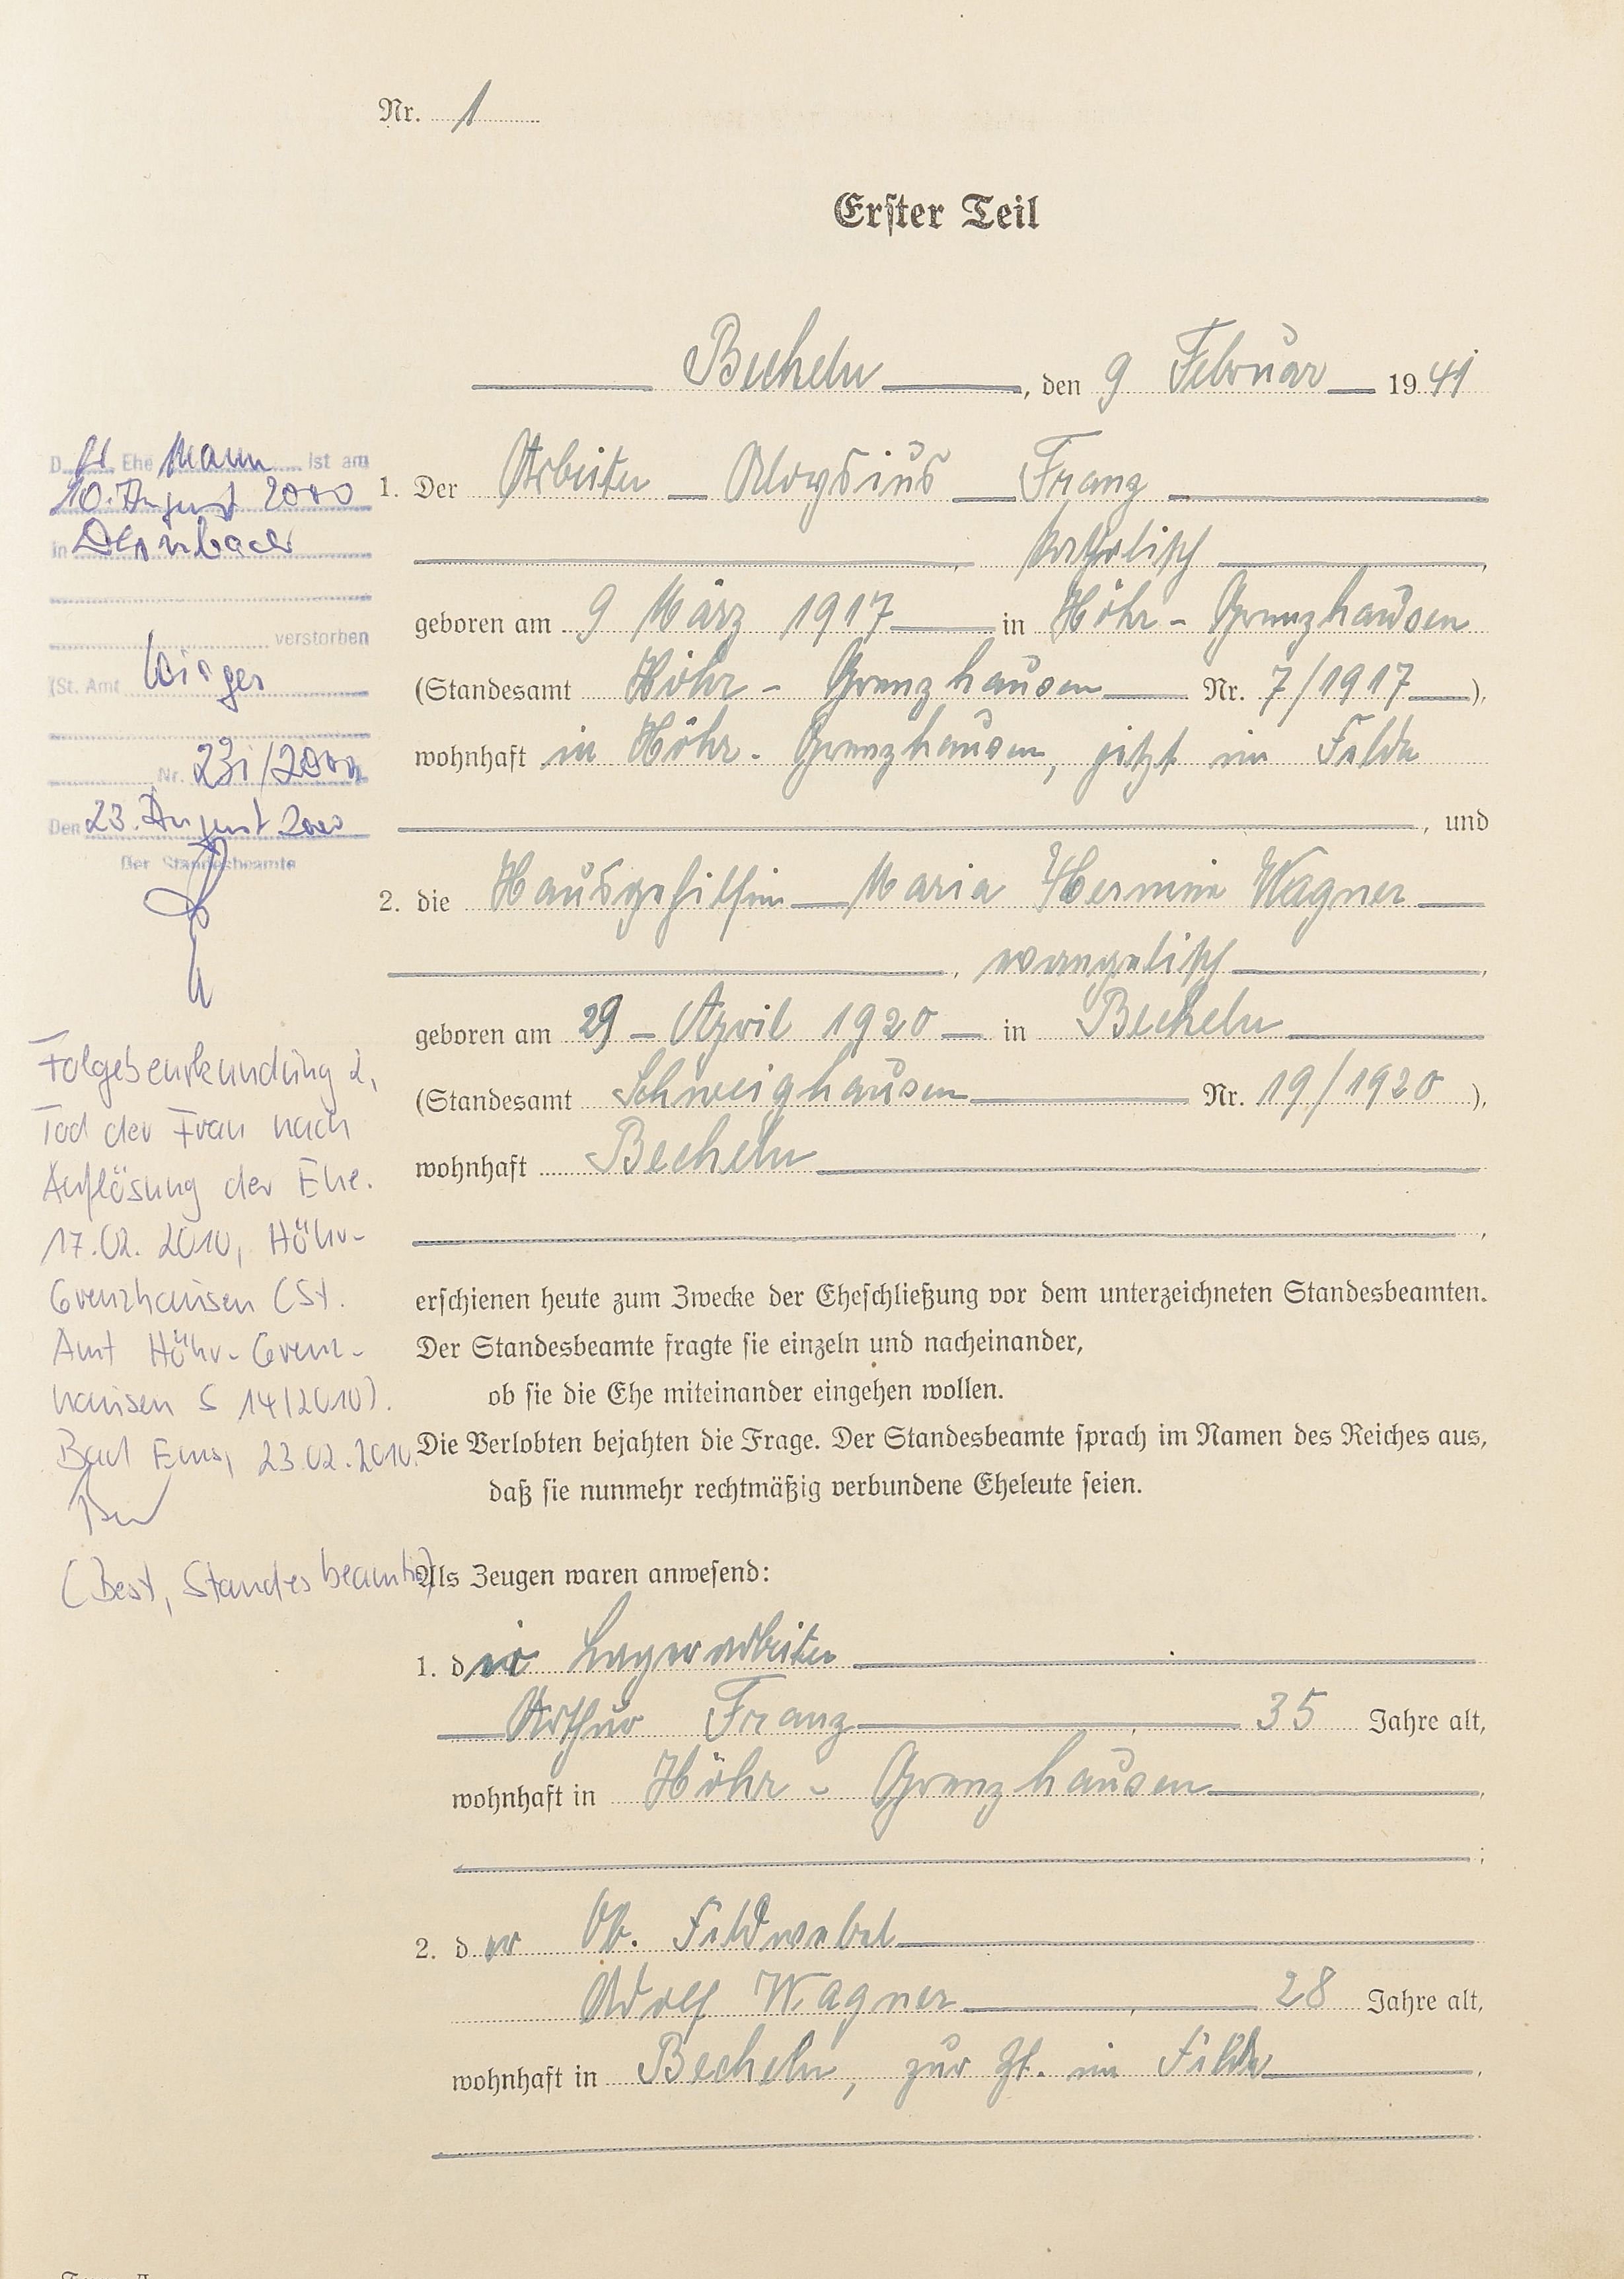 Nr. 1
Erster Teil
Becheln, den 9 Februar 1941
1. Der Arbeiter Aloysius Franz
katholisch,
geboren am 9 März 1917 in Höhr-Grenzhausen
(Standesamt Höhr-Grenzhausen Nr. 7/1917),
wohnhaft in Höhr-Grenzhausen, jetzt im Felde
, und
2. die Hausgehilfin Maria Hermine Wagner
, evangelisch,
geboren am 29 April 1920 in Becheln
(Standesamt Schweighausen Nr. 19/1920),
wohnhaft Becheln
,
erschienen heute zum Zwecke der Eheschließung vor dem unterzeichneten Standesbeamten.
Der Standesbeamte fragte sie einzeln und nacheinander,
ob sie die Ehe miteinander eingehen wollen.
Die Verlobten bejahten die Frage. Der Standesbeamte sprach im Namen des Reiches aus,
daß sie nunmehr rechtmäßig verbundene Eheleute seien.
Als Zeugen waren anwesend:
1. der Lagerarbeiter
Arthur Franz, 35 Jahre alt,
wohnhaft in Höhr-Grenzhausen,
;
2. der Ob. Feldwebel
Adolf Wagner, 28 Jahre alt,
wohnhaft in Becheln, zur Zt. im Felde,
.
Der Ehemann ist am
10. August 2000
in Dernbach
verstorben
(St. Amt Wirges
Nr. 231/2000
Den 23. August 2000
Der Standesbeamte
Folgebeurkundung 2,
Tod der Frau nach
Auflösung der Ehe.
17.02.2010, Höhr-
Grenzhausen (St.
Amt Höhr-Grenz-
hausen S 14/2010).
Bad Ems, 23.02.2010
(Best, Standesbeamtin)